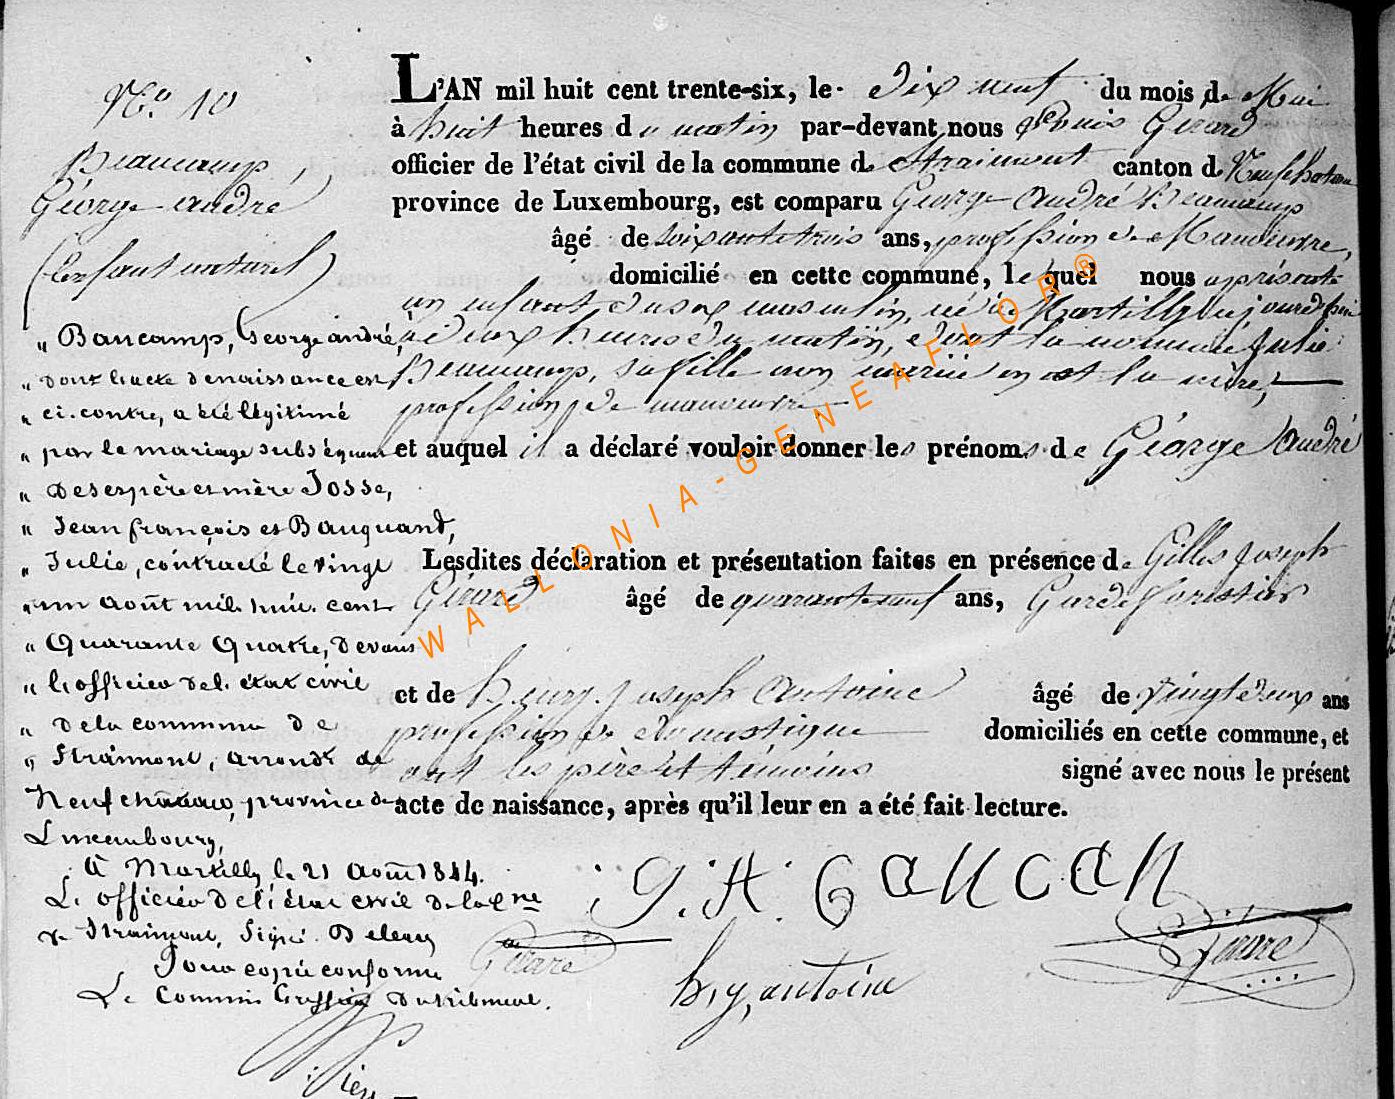 N.º 10
Beaucamp,
George andré
(Enfant naturel)
„ Baucamp, George andré,
„ dont l'acte de naissance est
„ ci-contre, a été légitimé
„ par le mariage subséquent
„ de ses père et mère Josse,
„ Jean françois et Bauquand,
„ Julie, contracté le vingt
„ un août mil huit cent
„ Quarante Quatre, devant
„ l'officier de l'état civil
„ de la commune de
„ Straimont, arrondt de
Neufchateau, province de
Luxembourg,
à Martilly le 21 août 1844.
Le officier de l'état civil de la Cne
de Straimont, Signé
Pour copie conforme
Le Commis Greffier du tribunal.
L'AN mil huit cent trente-six, le dix neuf du mois de Mai
à huit heures du matin par-devant nous Louis Girard
officier de l'état civil de la commune de Straimont canton de Neufchateau
province de Luxembourg, est comparu George andré Beaucamp
âgé de soixante trois ans, profession de Manoeuvre,
domicilié en cette commune, lequel nous a présenté
un enfant du sexe masculin, né à Martilly ce jourd'hui
à deux heures du matin, dont la nommée Julie
Beaucamp, sa fille non mariée en est la mère,
profession de manoeuvre
et auquel il a déclaré vouloir donner les prénoms de Géorge André
Lesdites déclaration et présentation faites en présence de Gilles Joseph
Girard âgé de quarante neuf ans, Garde forestier
et de henry Joseph Antoine âgé de vingt deux ans
profession de domestique domiciliés en cette commune, et
ont les père et témoins signé avec nous le présent
acte de naissance, après qu'il leur en a été fait lecture.
Girard
hry, antoine
Girard
WALLONIA-GENEAFLOR®